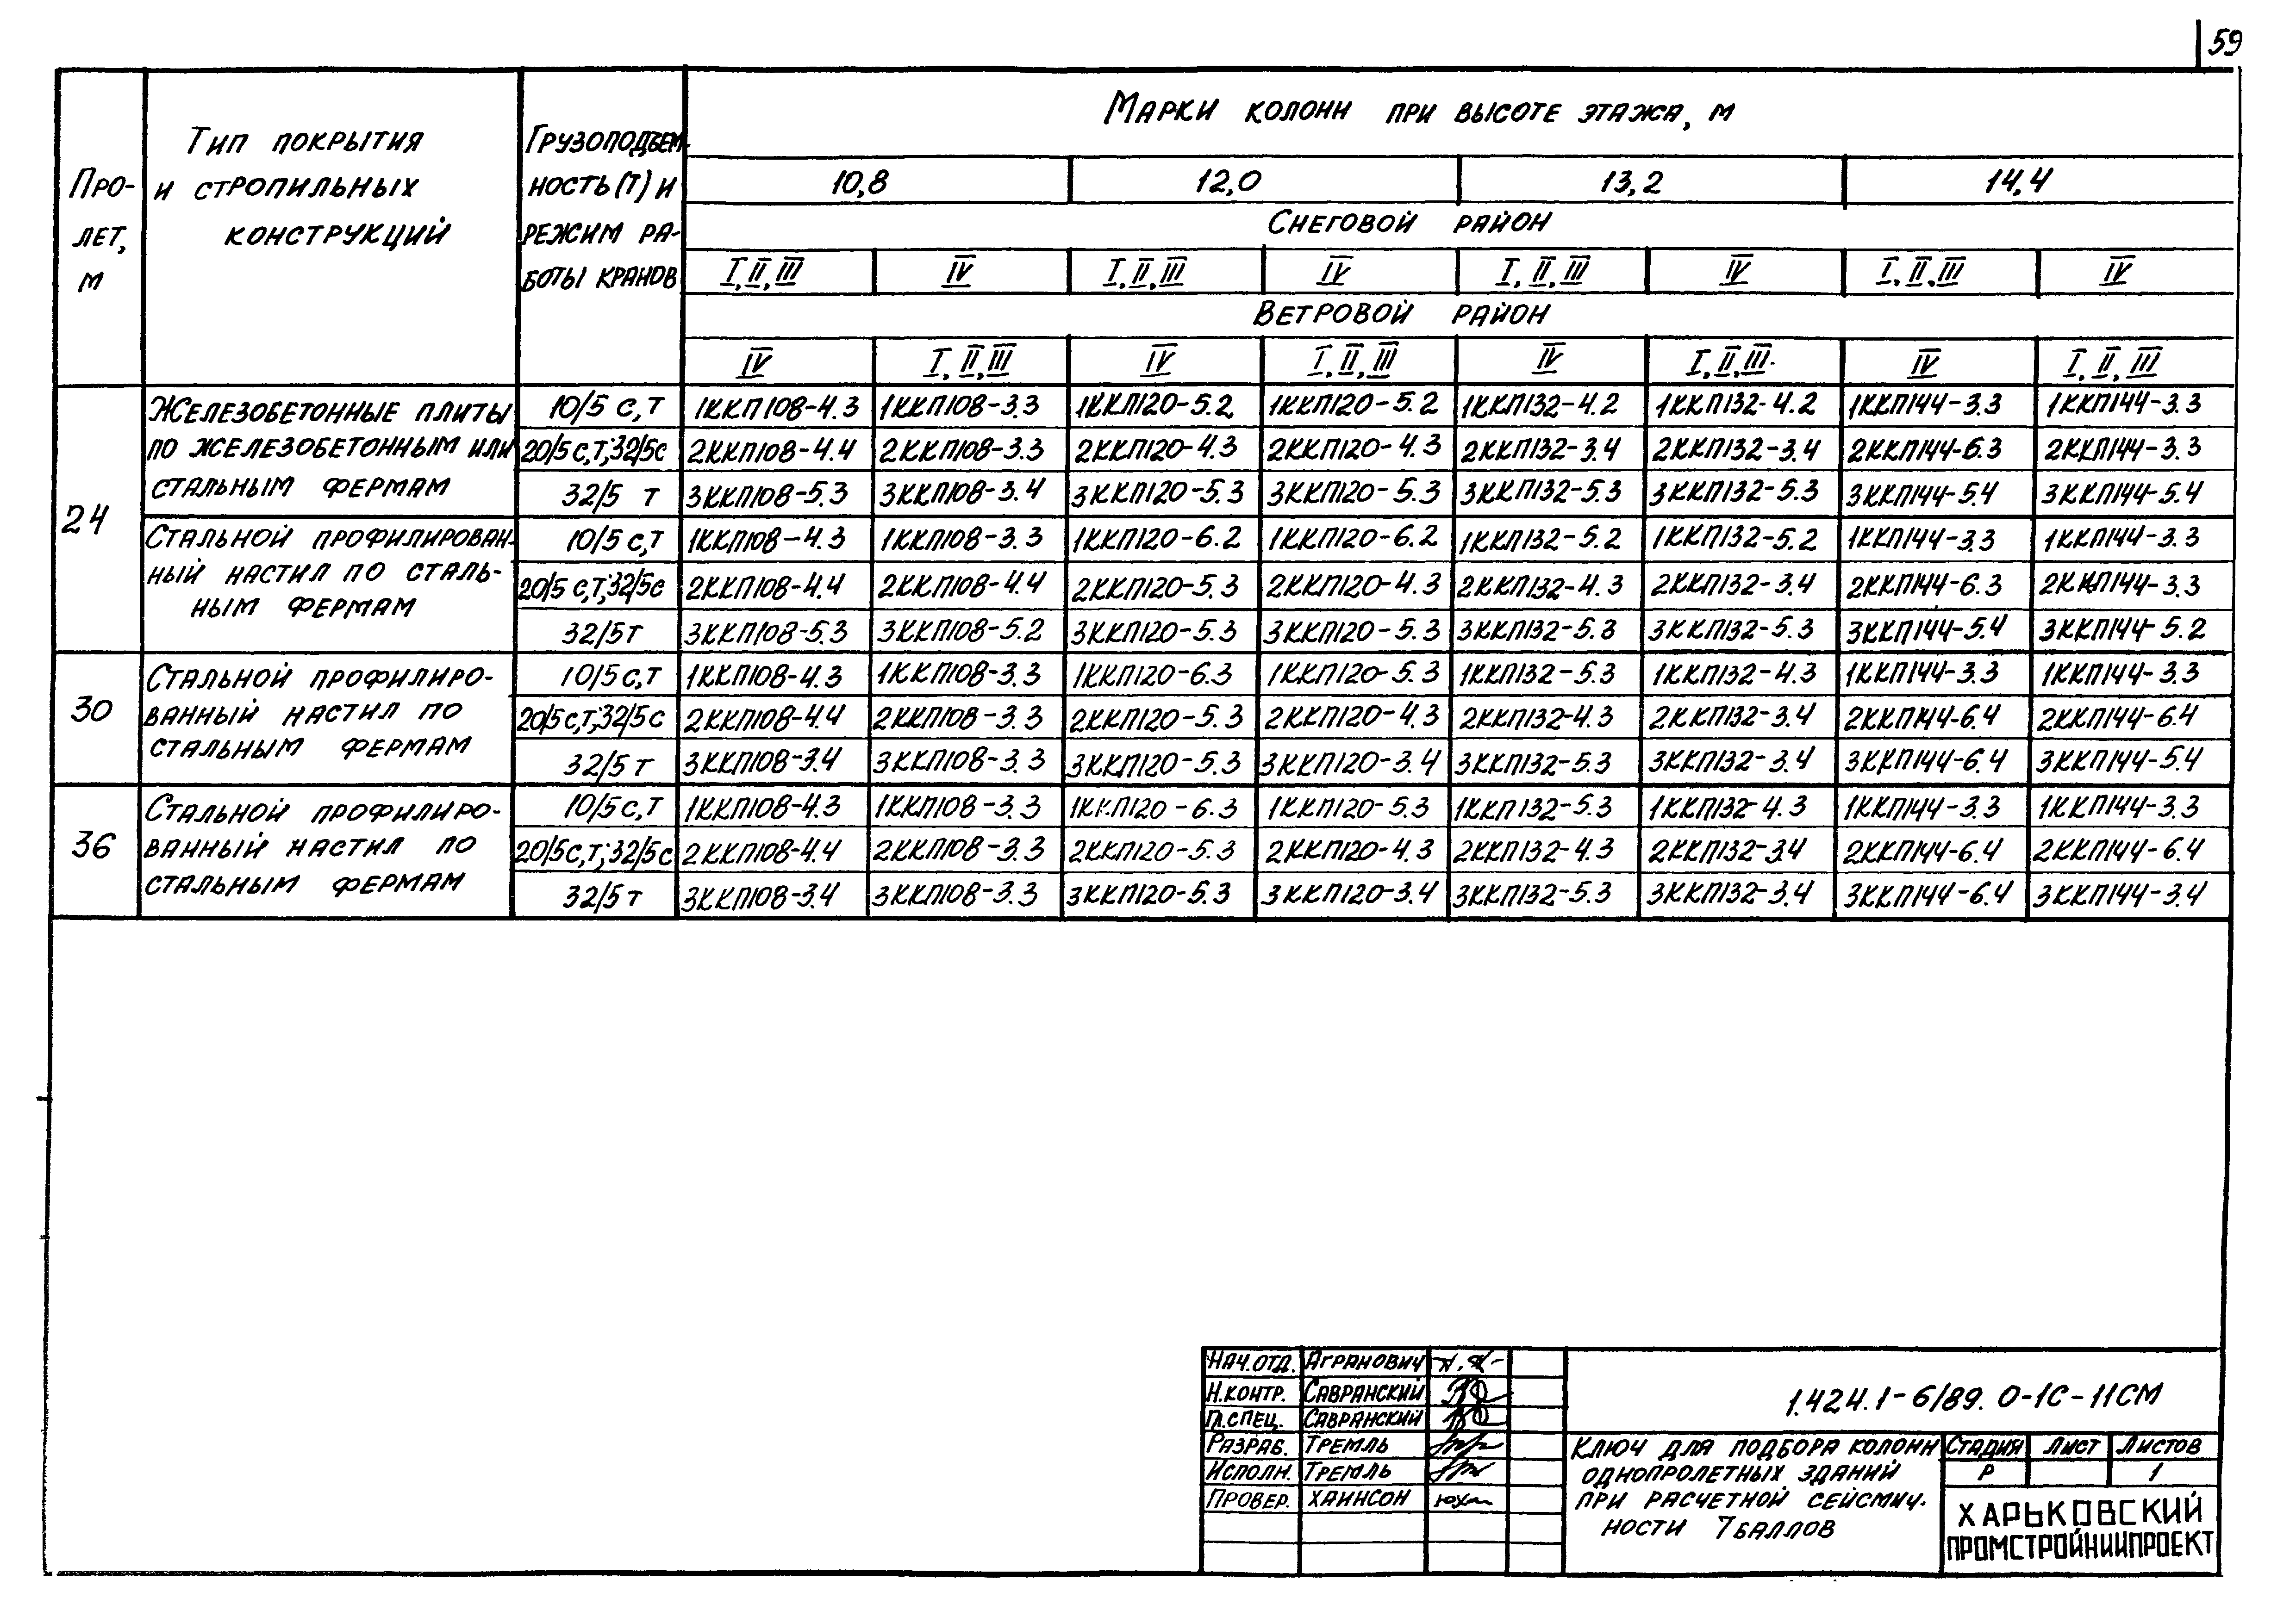 59
Марки колонн при высоте этажа, м
Про-
лет,
м
Тип покрытия
и стропильных
конструкций
Грузоподъем-
ность (т) и
режим ра-
боты кранов
10,8 12,0 13,2 14,4
Снеговой район
I, II, III IV I, II, III IV I, II, III IV I, II, III IV
Ветровой район
IV I, II, III IV I, II, III IV I, II, III IV I, II, III
24
Железобетонные плиты
по железобетонным или
стальным фермам
10/5 с,т 1ККП108-4.3 1ККП108-3.3 1ККП120-5.2 1ККП120-5.2 1ККП132-4.2 1ККП132-4.2 1ККП144-3.3 1ККП144-3.3
20/5 с,т; 32/5с 2ККП108-4.4 2ККП108-3.3 2ККП120-4.3 2ККП120-4.3 2ККП132-3.4 2ККП132-3.4 2ККП144-6.3 2ККП144-3.3
32/5 т 3ККП108-5.3 3ККП108-3.4 3ККП120-5.3 3ККП120-5.3 3ККП132-5.3 3ККП132-5.3 3ККП144-5.4 3ККП144-5.4
Стальной профилирован-
ный настил по сталь-
ным фермам
10/5 с,т 1ККП108-4.3 1ККП108-3.3 1ККП120-6.2 1ККП120-6.2 1ККП132-5.2 1ККП132-5.2 1ККП144-3.3 1ККП144-3.3
20/5 с,т; 32/5с 2ККП108-4.4 2ККП108-4.4 2ККП120-5.3 2ККП120-4.3 2ККП132-4.3 2ККП132-3.4 2ККП144-6.3 2ККП144-3.3
32/5 т 3ККП108-5.3 3ККП108-5.2 3ККП120-5.3 3ККП120-5.3 3ККП132-5.3 3ККП132-5.3 3ККП144-5.4 3ККП144-5.2
30
Стальной профилиро-
ванный настил по
стальным фермам
10/5 с,т 1ККП108-4.3 1ККП108-3.3 1ККП120-6.3 1ККП120-5.3 1ККП132-5.3 1ККП132-4.3 1ККП144-3.3 1ККП144-3.3
20/5 с,т; 32/5 с 2ККП108-4.4 2ККП108-3.3 2ККП120-5.3 2ККП120-4.3 2ККП132-4.3 2ККП132-3.4 2ККП144-6.4 2ККП144-6.4
32/5 т 3ККП108-3.4 3ККП108-3.3 3ККП120-5.3 3ККП120-3.4 3ККП132-5.3 3ККП132-3.4 3ККП144-6.4 3ККП144-5.4
36
Стальной профилиро-
ванный настил по
стальным фермам
10/5 с,т 1ККП108-4.3 1ККП108-3.3 1ККП120-6.3 1ККП120-5.3 1ККП132-5.3 1ККП132-4.3 1ККП144-3.3 1ККП144-3.3
20/5 с,т; 32/5 с 2ККП108-4.4 2ККП108-3.3 2ККП120-5.3 2ККП120-4.3 2ККП132-4.3 2ККП132-3.4 2ККП144-6.4 2ККП144-6.4
32/5 т 3ККП108-3.4 3ККП108-3.3 3ККП120-5.3 3ККП120-3.4 3ККП132-5.3 3ККП132-3.4 3ККП144-6.4 3ККП144-3.4
Нач.отд. Агранович
Н.контр. Савранский
Гл.спец. Савранский
Разраб. Тремль
Исполн. Тремль
Провер. Хаинсон
1.424.1-6/89. 0-1С-11СМ
Ключ для подбора колонн
однопролетных зданий
при расчетной сейсмич-
ности 7 баллов
Стадия Лист Листов
Р 1
ХАРЬКОВСКИЙ
ПРОМСТРОЙНИИПРОЕКТ